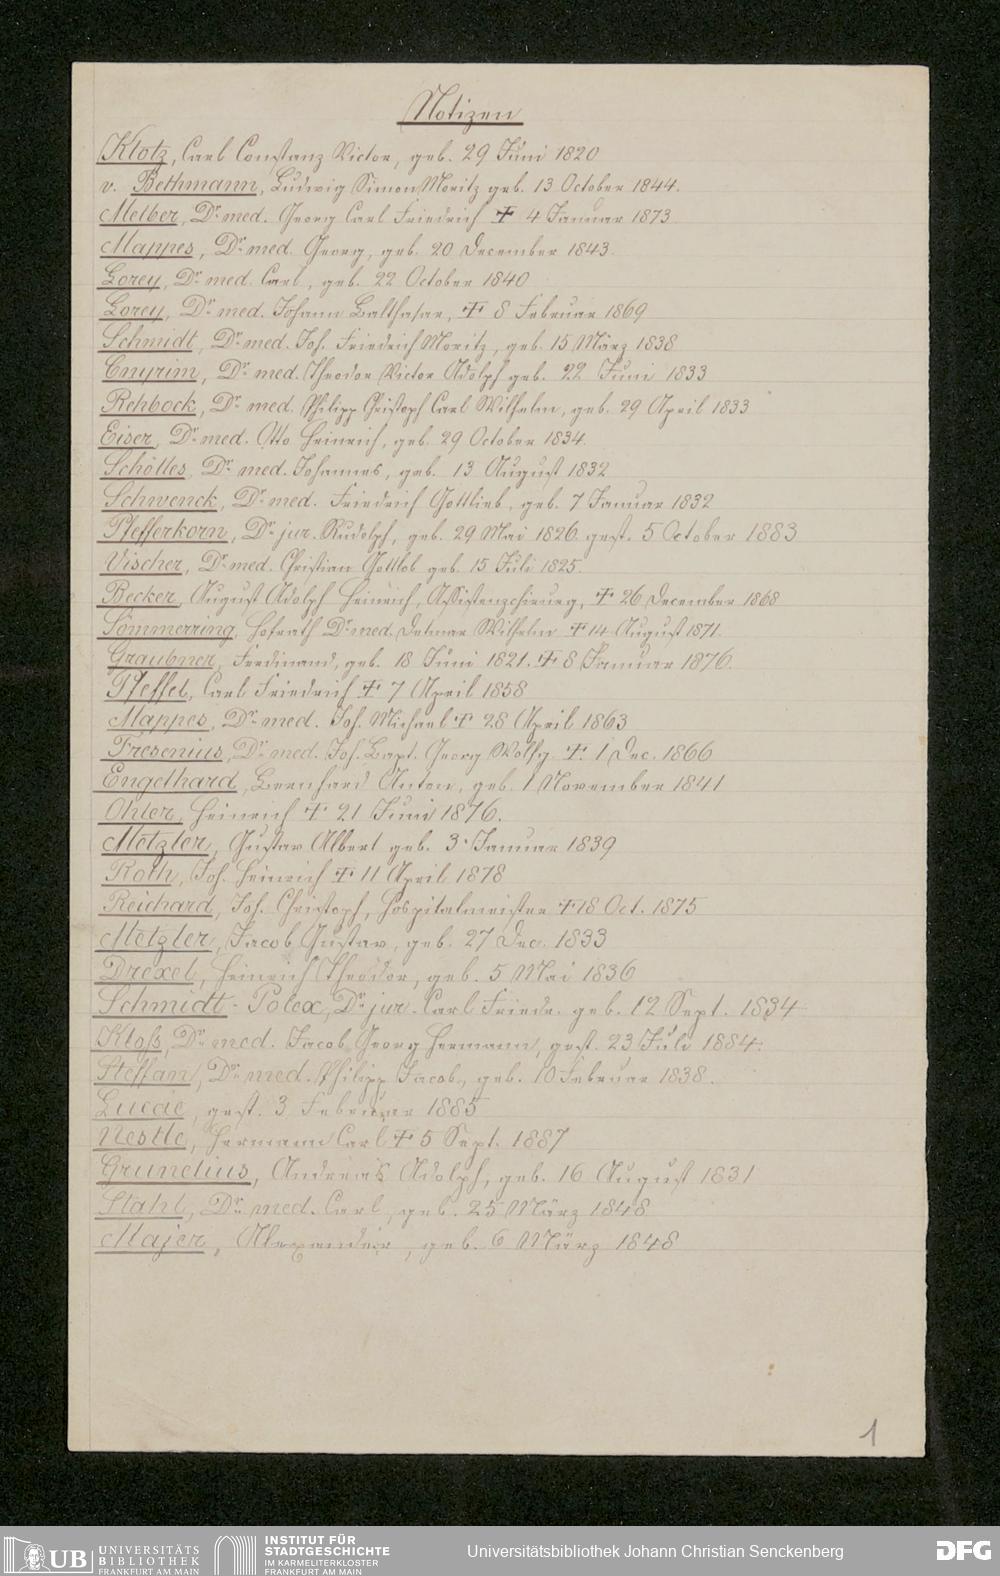 Notizen
Klotz, Carl Constanz Victor, geb. 29 Juni 1820
v. Bethmann, Ludwig Simon Moritz geb. 13 October 1844.
Melber, Dr. med. Georg Carl Friedrich ✝ 4 Januar 1873
Mappes, Dr. med. Georg, geb. 20 December 1843.
Lorey, Dr. med. Carl, geb. 22 October 1840
Lorey, Dr. med. Johann Balthasar, ✝ 8 Februar 1869
Schmidt, Dr. med. Joh. Friedrich Moritz, geb. 15 März 1838
Cnyrim, Dr. med. Theodor Victor Adolph geb. 22 Juni 1833
Rehbock, Dr. med. Philipp Christoph Carl Wilhelm, geb. 29 April 1833
Eiser, Dr. med. Otto Heinrich, geb. 29 October 1834.
Schölles, Dr. med. Johannes, geb. 13 August 1832
Schwenck, Dr. med. Friedrich Gottlieb, geb. 7 Januar 1832
Pfefferkorn, Dr. jur. Rudolph, geb. 29 Mai 1826 gest. 5 October 1883
Vischer, Dr. med. Christian Gottlob geb. 15 Juli 1825.
Becker, August Adolph Heinrich, Assistenzchirurg, ✝ 26 December 1868
Sömmerring, Hofrath Dr. med. Detmar Wilhelm ✝ 14 August 1871.
Graubner, Ferdinand, geb. 18 Juni 1821. ✝ 8 Januar 1876.
Pfeffel, Carl Friedrich ✝ 7 April 1858
Mappes, Dr. med. Joh. Michael ✝ 28 April 1863
Fresenius, Dr. med. Joh. Bapt. Georg Wolfg. ✝. 1 Dec. 1866
Engelhard, Bernhard Anton, geb. 1 November 1841
Ohler, Heinrich ✝ 21 Juni 1876.
Metzler, Gustav Albert geb. 3. Januar 1839
Roth, Joh. Heinrich ✝ 11 April 1878
Reichard, Joh. Christoph, Hospitalmeister ✝ 18 Oct. 1875
Metzler, Jacob Gustav, geb. 27 Dec. 1833
Drexel, Heinrich Theodor, geb. 5 Mai 1836
Schmidt-Polex, Dr. jur. Carl Friedr. geb. 12 Sept. 1834
Kloß, Dr. med. Jacob Georg Hermann, gest. 23 Juli 1884.
Steffan, Dr. med. Philipp Jacob, geb. 10 Februar 1838.
Lucae, gest. 3 Februar 1885
Nestle, Hermann Carl ✝ 5 Sept. 1887
Grunelius, Andreas Adolph, geb. 16 August 1831
Stahl, Dr. med. Carl, geb. 25 März 1848
Majer, Alexander, geb. 6 März 1848
1
UB UNIVERSITÄTS BIBLIOTHEK FRANKFURT AM MAIN
INSTITUT FÜR STADTGESCHICHTE IM KARMELITERKLOSTER FRANKFURT AM MAIN
Universitätsbibliothek Johann Christian Senckenberg
DFG